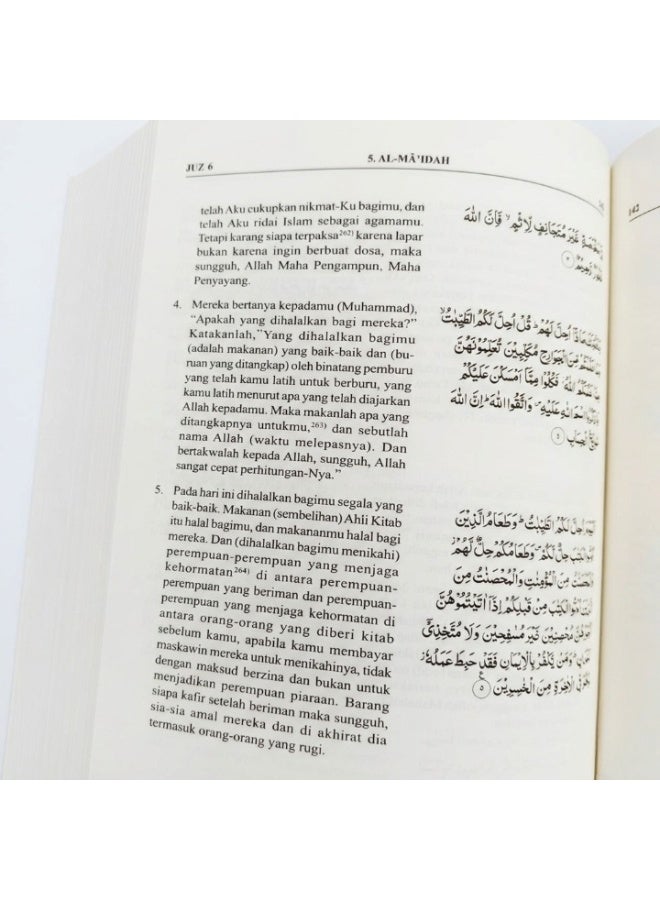 JUZ 6
5. AL-MÂ’IDAH
telah Aku cukupkan nikmat-Ku bagimu, dan
telah Aku ridai Islam sebagai agamamu.
Tetapi karang siapa terpaksa²⁶²⁾ karena lapar
bukan karena ingin berbuat dosa, maka
sungguh, Allah Maha Pengampun, Maha
Penyayang.
4. Mereka bertanya kepadamu (Muhammad),
“Apakah yang dihalalkan bagi mereka?”
Katakanlah,“Yang dihalalkan bagimu
(adalah makanan) yang baik-baik dan (bu-
ruan yang ditangkap) oleh binatang pemburu
yang telah kamu latih untuk berburu, yang
kamu latih menurut apa yang telah diajarkan
Allah kepadamu. Maka makanlah apa yang
ditangkapnya untukmu,²⁶³⁾ dan sebutlah
nama Allah (waktu melepasnya). Dan
bertakwalah kepada Allah, sungguh, Allah
sangat cepat perhitungan-Nya.”
5. Pada hari ini dihalalkan bagimu segala yang
baik-baik. Makanan (sembelihan) Ahii Kitab
itu halal bagimu, dan makananmu halal bagi
mereka. Dan (dihalalkan bagimu menikahi)
perempuan-perempuan yang menjaga
kehormatan²⁶⁴⁾ di antara perempuan-
perempuan yang beriman dan perempuan-
perempuan yang menjaga kehormatan di
antara orang-orang yang diberi kitab
sebelum kamu, apabila kamu membayar
maskawin mereka untuk menikahinya, tidak
dengan maksud berzina dan bukan untuk
menjadikan perempuan piaraan. Barang
siapa kafir setelah beriman maka sungguh,
sia-sia amal mereka dan di akhirat dia
termasuk orang-orang yang rugi.
غَيْرَ مُتَجَانِفٍ لِّاِثْمٍۙ فَاِنَّ اللّٰهَ
اُحِلَّ لَهُمْۗ قُلْ اُحِلَّ لَكُمُ الطَّيِّبٰتُۙ
مِّنَ الْجَوَارِحِ مُكَلِّبِيْنَ تُعَلِّمُوْنَهُنَّ
اللّٰهُ فَكُلُوْا مِمَّآ اَمْسَكْنَ عَلَيْكُمْ
اللّٰهِ عَلَيْهِۖ وَاتَّقُوا اللّٰهَۗ اِنَّ اللّٰهَ
اُحِلَّ لَكُمُ الطَّيِّبٰتُۗ وَطَعَامُ الَّذِيْنَ
حِلٌّ لَّكُمْۖ وَطَعَامُكُمْ حِلٌّ لَّهُمْ
مِنَ الْمُؤْمِنٰتِ وَالْمُحْصَنٰتُ مِنَ
الْكِتٰبَ مِنْ قَبْلِكُمْ اِذَآ اٰتَيْتُمُوْهُنَّ
مُحْصِنِيْنَ غَيْرَ مُسٰفِحِيْنَ وَلَا مُتَّخِذِيْٓ
وَمَنْ يَّكْفُرْ بِالْاِيْمَانِ فَقَدْ حَبِطَ عَمَلُهٗ
فِى الْاٰخِرَةِ مِنَ الْخٰسِرِيْنَ ٥
142